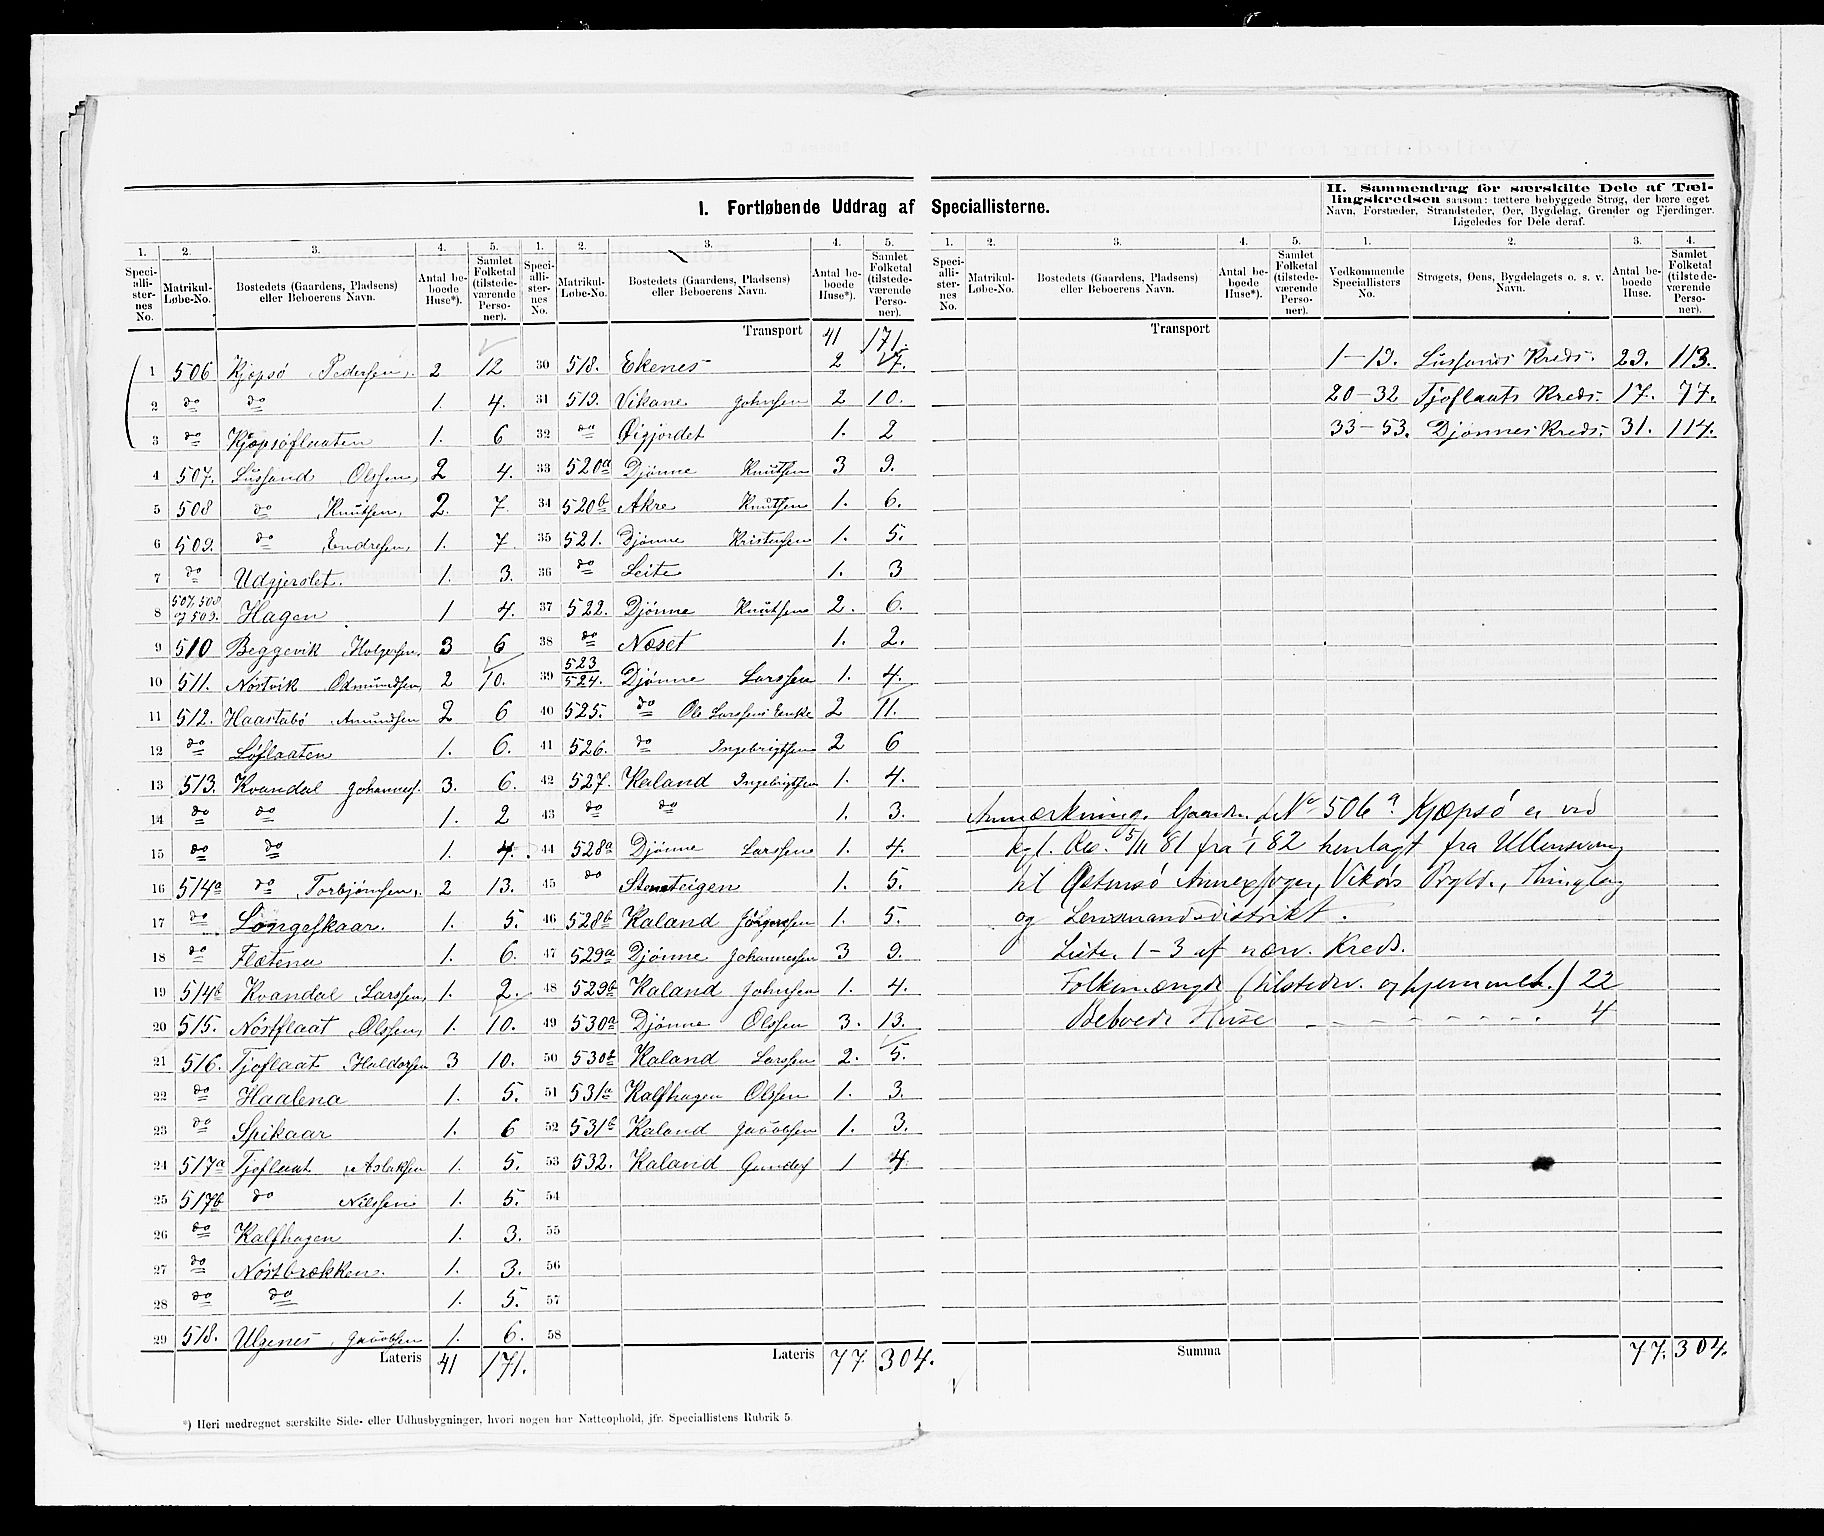 I. Fortløbende Uddrag af Speciallisterne.
II. Sammendrag for særskilte Dele af Tæl-
lingskredsen saasom: tættere bebyggede Strøg, der bære eget
Navn, Forstæder, Strandsteder, Øer, Bygdelag, Grender og Fjerdinger.
Ligeledes for Dele deraf.
1. 2. 3. 4. 5. 1. 2. 3. 4. 5. 1. 2. 3. 4. 5. 1. 2. 3. 4.
Speciallisternes No. Matrikul-Løbe-No. Bostedets (Gaardens, Pladsens) eller Beboerens Navn. Antal beboede Huse*). Samlet Folketal (tilstedeværende Personer).
Speciallisternes No. Matrikul-Løbe-No. Bostedets (Gaardens, Pladsens) eller Beboerens Navn. Antal beboede Huse*). Samlet Folketal (tilstedeværende Personer).
Speciallisternes No. Matrikul-Løbe-No. Bostedets (Gaardens, Pladsens) eller Beboerens Navn. Antal beboede Huse*). Samlet Folketal (tilstedeværende Personer).
Vedkommende Speciallisters No. Strøgets, Øens, Bygdelagets o. s. v. Navn. Antal beboede Huse. Samlet Folketal (tilstedeværende Personer).
1 506 Kjepsö Pedersen, 2 12
2 do do 1. 4.
3 do Kjæpsöflaaten 1. 6
4 507. Lussand Olssen, 2 4.
5 508 do Knutsen, 2. 7.
6 509. do Endresen, 1. 7.
7 do Udgjerdet. 1. 3.
8 507, 508 og 509. Hagen 1 4.
9 510 Beggevik Holgersen, 3 6
10 511. Nöstvik Odmundsen, 2 10.
11 512. Haastabö Amundsen 2 6
12 do Löflaaten 1. 6.
13 513. Kvandal Johannes. 3. 6.
14 do do 1. 2
15 do do 1. 4.
16 514a do Torbjönsen, 2 13.
17 do Longeskaar. 1. 5.
18 do Flætena 1. 6.
19 514b Kvandal Larssen, 1. 2.
20 515. Nöstflaat Olssen, 1. 10.
21 516. Tjoflaat Haldorsen 3 10.
22 do Haalena 1. 5.
23 do Spikaar 1. 6
24 517a Tjoflaat Aslaksen 1. 5.
25 517b do Nilssen 1. 5.
26 do Kalfhagen 1. 3.
27 do Nöstbrækken. 1. 3.
28 do do 1. 5.
29 518. Ulgenes Jacobsen 1. 6.
Lateris 41 171.
Transport 41 171.
30 518. Ekenes 2 17.
31 519. Vikane Johnsen 2 10.
32 do Öigjordet 1. 2
33 520a Djönne Knutsen 3 9.
34 520b Akre Knutsen 1. 6.
35 521. Djönne Kristensen 1. 5.
36 do Leite 1. 3
37 522. Djönne Knutsen 2. 6.
38 do Næset 1. 2.
39 523 / 524. Djönne Larssen 1. 4.
40 525. do Ole Larssens Enke 2 11.
41 526. do Ingebrigtsen 2 6
42 527. Kaland Ingebrigtsen 1. 4.
43 do do 1. 3.
44 528a Djönne Larssen 1. 4.
45 do Stensteigen 1. 5.
46 528b Kaland Jörgensen 1. 5.
47 529a Djönne Johannessen 3 9.
48 529b Kaland Johnsen 1. 4.
49 530a Djönne Olssen 3. 13.
50 530b Kaland Larssen 2. 5.
51 531a Kalfhagen Olssen 1. 3.
52 531b Kaland Jacobsen 1. 3.
53 532. Kaland Gunders 1 4
54
55
56
57
58
Lateris 77 304.
Transport
1–19. Lussands Kreds. 29. 113.
20–32 Tjoflaats Kreds. 17. 77.
33–53. Djönnes Kreds. 31. 114.
Anmærkning. Gaarden LNo 506a Kjæpsö er ved
kgl. Res. 5/11 81 fra 1/1 82 henlagt fra Ullensvang
til Östensö Annexsogn, Vikörs Prgld., Thinglag
og Lensmandsdistrikt.
Liste 1–3 af nærv. Kreds.
Folkemængde (tilstedev. og hjemmeh.) 22
Beboede Huse - - - - - - - 4
Summa 77. 304.
*) Heri medregnet særskilte Side- eller Udhusbygninger, hvori nogen har Natteophold, jfr. Speciallistens Rubrik 5.